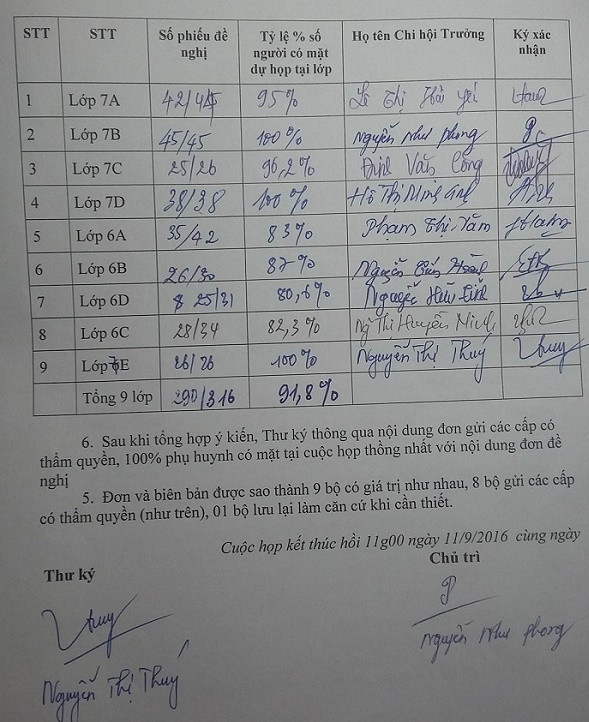 STT STT Số phiếu đề nghị Tỷ lệ % số người có mặt dự họp tại lớp Họ tên Chi hội Trưởng Ký xác nhận
1 Lớp 7A 42/44 95% Lê Thị Hải Yến
2 Lớp 7B 45/45 100% Nguyễn Như phong
3 Lớp 7C 25/26 96,2% Đinh Văn Công
4 Lớp 7D 38/38 100% Hồ Thị Minh Anh
5 Lớp 6A 35/42 83% Phạm Thị Năm
6 Lớp 6B 26/30 87% Nguyễn
7 Lớp 6D 25/31 80,6% Nguyễn Hữu
8 Lớp 6C 28/34 82,3% Ng Thị Huyền Minh
9 Lớp 7E 26/26 100% Nguyễn Thị Thuý
Tổng 9 lớp 290/316 91,8%
6. Sau khi tổng hợp ý kiến, Thư ký thông qua nội dung đơn gửi các cấp có
thẩm quyền, 100% phụ huynh có mặt tại cuộc họp thồng nhất với nội dung đơn đề
nghị
5. Đơn và biên bản được sao thành 9 bộ có giá trị như nhau, 8 bộ gửi các cấp
có thẩm quyền (như trên), 01 bộ lưu lại làm căn cứ khi cần thiết.
Cuộc họp kết thúc hồi 11g00 ngày 11/9/2016 cùng ngày
Thư ký Chủ trì
Nguyễn Như phong
Nguyễn Thị Thuý